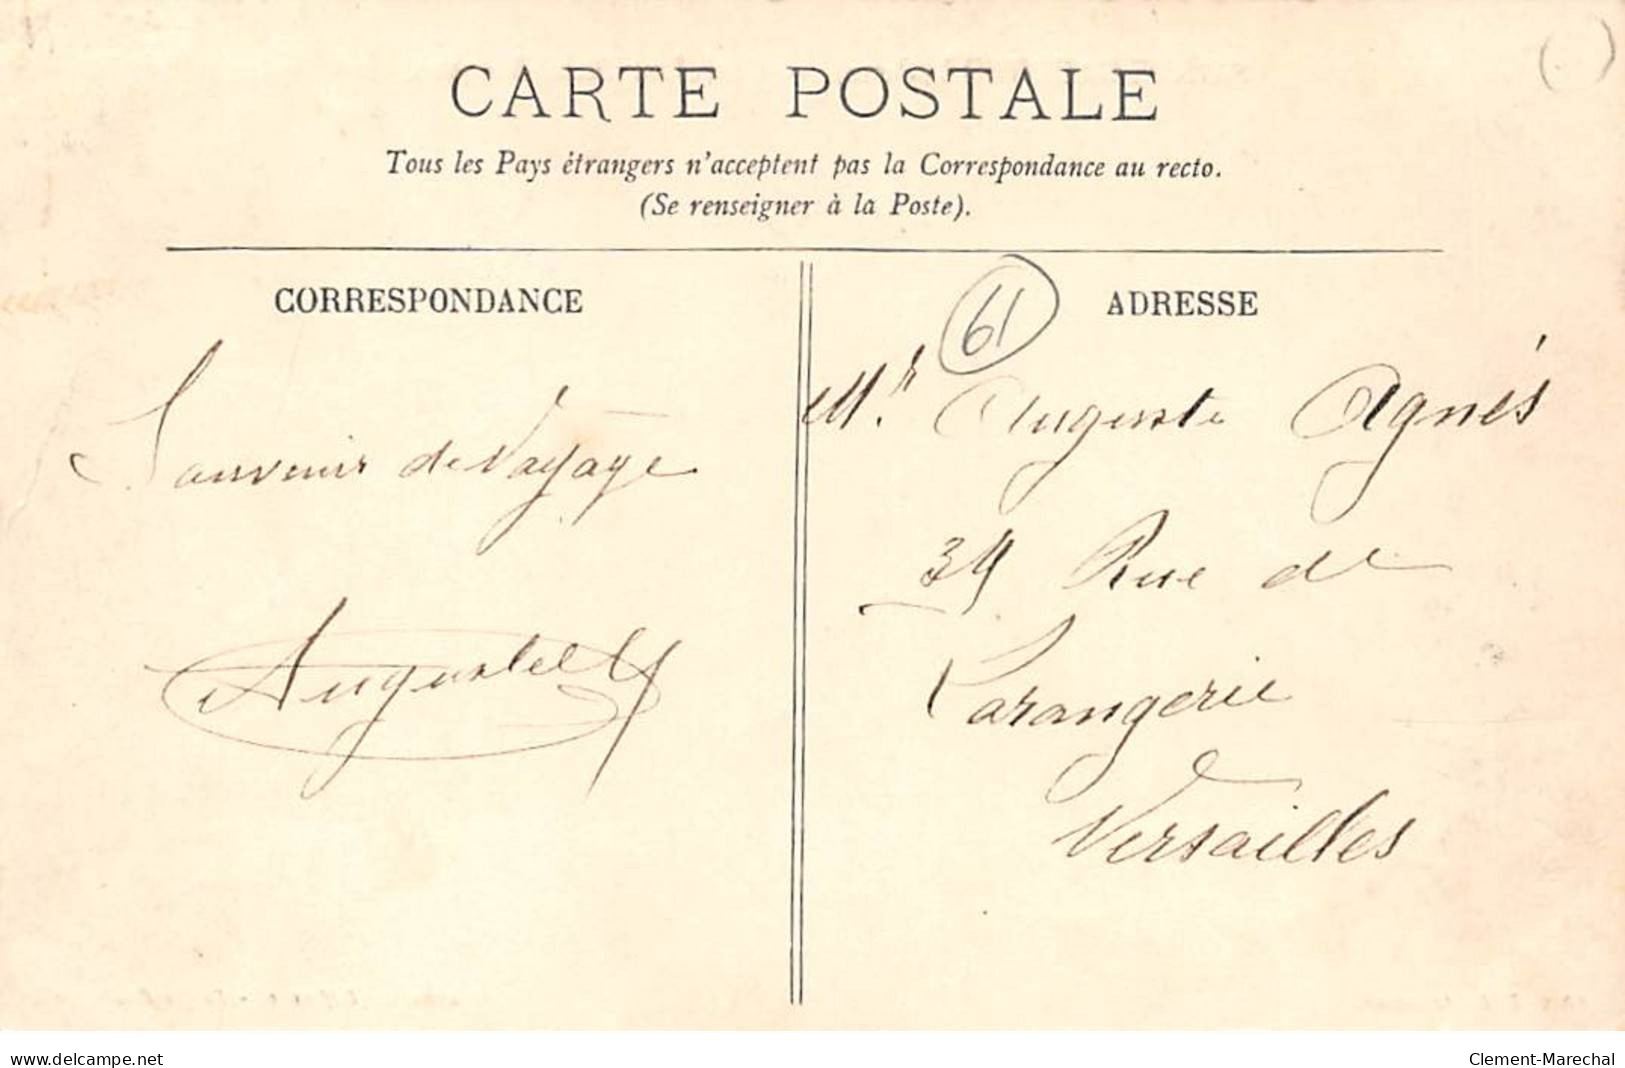 CARTE POSTALE
Tous les Pays étrangers n'acceptent pas la Correspondance au recto.
(Se renseigner à la Poste).
CORRESPONDANCE
Souvenir de Voyage
ADRESSE
61
Mr. Auguste Agnés
34 Rue de
Larangerie
Versailles
www.delcampe.net
Clement-Marechal